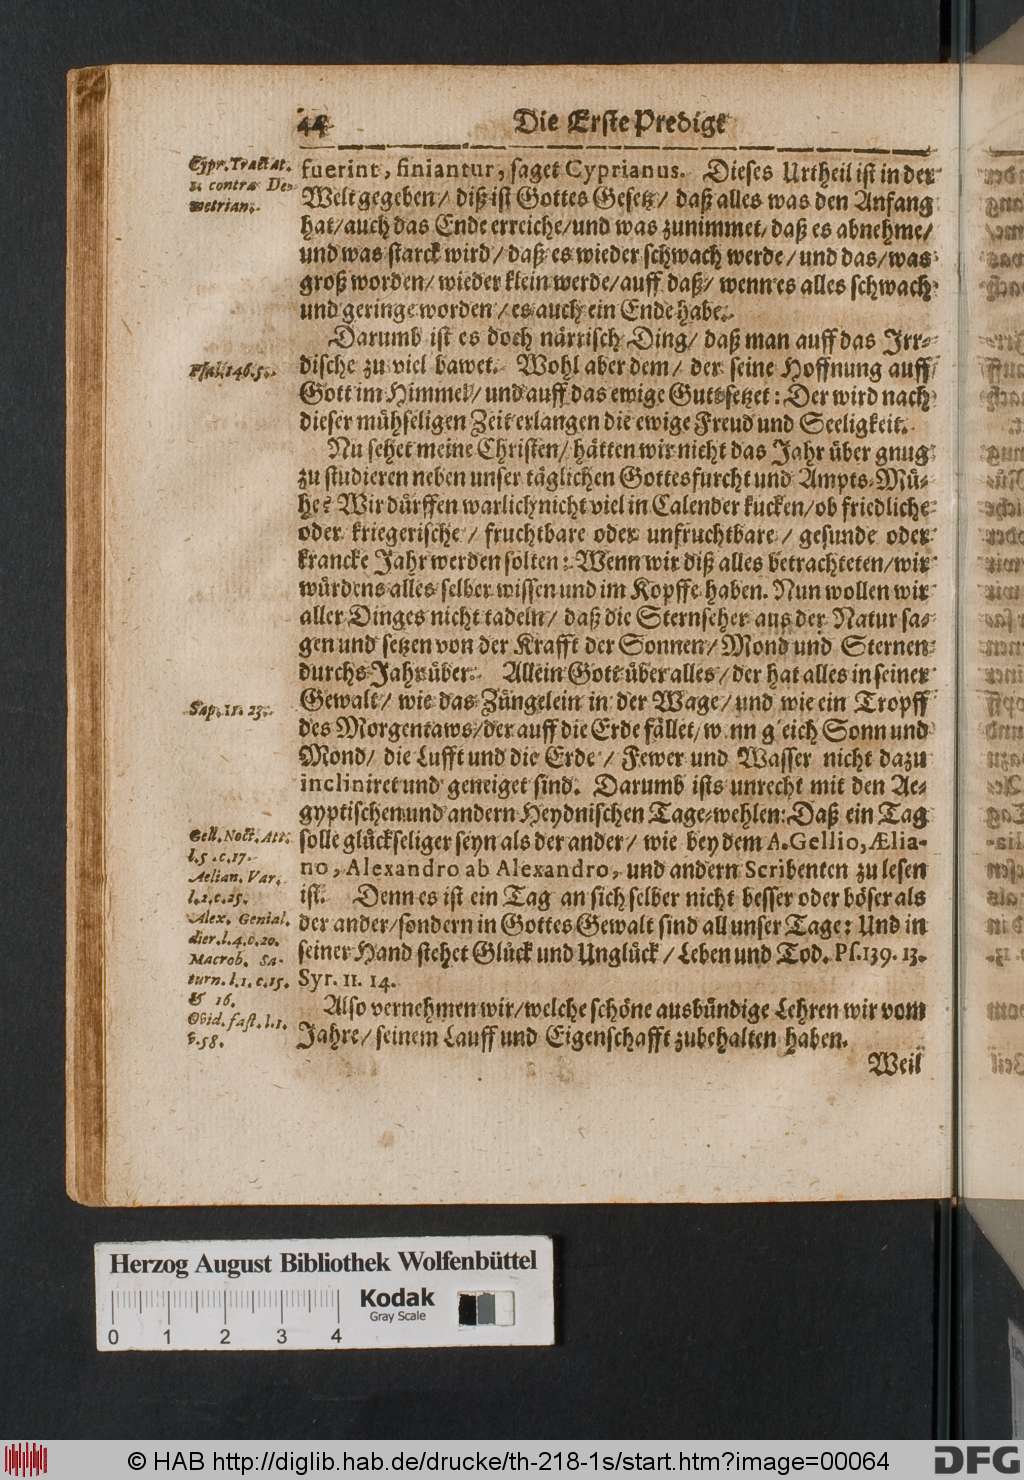 44
Die Erste Predigt
fuerint, finiantur, saget Cyprianus. Dieses Urtheil ist in der
Welt gegeben/ diß ist Gottes Gesetz/ daß alles was den Anfang
hat/auch das Ende erreiche/und was zunimmet/ daß es abnehme/
und was starck wird/ daß es wieder schwach werde/und das/was
groß worden/ wieder klein werde/auff daß/ wenn es alles schwach
und geringe worden/ es auch ein Ende habe.
Darumb ist es doch närrisch Ding/ daß man auff das Irr-
dische zu viel bawet. Wohl aber dem/ der seine Hoffnung auff
Gott im Himmel/ und auff das ewige Gutt setzet: Der wird nach
dieser mühseligen Zeit erlangen die ewige Freud und Seeligkeit.
Nu sehet meine Christen/ hätten wir nicht das Jahr über gnug
zu studieren neben unser täglichen Gottesfurcht und Ampts-Mü-
he? Wir dürffen warlich nicht viel in Calender kucken/ob friedliche
oder kriegerische/ fruchtbare oder unfruchtbare/ gesunde oder
krancke Jahr werden solten: Wenn wir diß alles betrachteten/wir
würdens alles selber wissen und im Kopffe haben. Nun wollen wir
aller Dinges nicht tadeln/ daß die Sternseher aus der Natur sa-
gen und setzen von der Krafft der Sonnen/ Mond und Sternen
durchs Jahr über. Allein Gott über alles/ der hat alles in seiner
Gewalt/ wie das Züngelein in der Wage/ und wie ein Tropff
des Morgentaws/der auff die Erde fället/ w nn g eich Sonn und
Mond/ die Lufft und die Erde/ Fewer und Wasser nicht dazu
incliniret und geneiget sind. Darumb ists unrecht mit den Ae-
gyptischen und andern Heydnischen Tage-wehlen: Daß ein Tag
solle glückseliger seyn als der ander/ wie bey dem A. Gellio, Ælia-
no, Alexandro ab Alexandro, und andern Scribenten zu lesen
ist. Denn es ist ein Tag an sich selber nicht besser oder böser als
der ander/sondern in Gottes Gewalt sind all unser Tage: Und in
seiner Hand stehet Glück und Unglück/ Leben und Tod. Ps. 139. 13.
Syr. 11. 14.
Also vernehmen wir/welche schöne ausbündige Lehren wir vom
Jahre/ seinem Lauff und Eigenschafft zubehalten haben.
Weil
Cypr. Tractat.
contra De-
metrian.
Psal. 146. 5.
Sap. 11. 23.
Gell. Noct. Att.
l. 5. c. 17.
Aelian. Var.
l. 2. c. 25.
Alex. Genial.
dier. l. 4. c. 20.
Macrob. Sa-
turn. l. 1. c. 15.
& 16.
Ovid. fast. l. 1.
v. 58.
Herzog August Bibliothek Wolfenbüttel
0 1 2 3 4
Kodak
Gray Scale
© HAB http://diglib.hab.de/drucke/th-218-1s/start.htm?image=00064
DFG